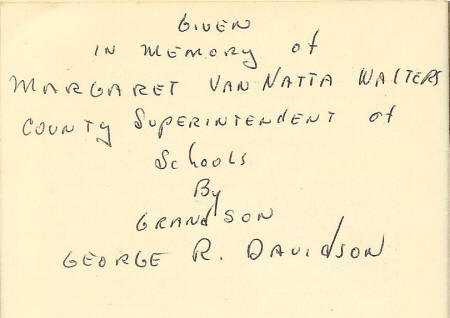 GIVEN
IN MEMORY of
MARGARET VAN NATTA WALTERS
COUNTY SUPERINTENDENT of
Schools
By
GRANdSON
GEORGE R. DAVIdSON